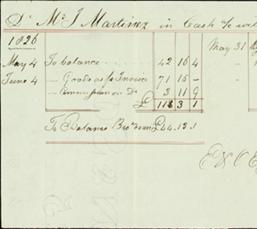 Dr Mr J Martinez in Cash
1826
May 4 To balance 42 16 4 May 31
June 4 – Goods as pr Invoice 71 15 –
– Commission on Do 3 11 9
£ 118 3 1
To Balance Brot down £44.12.1
E & O E